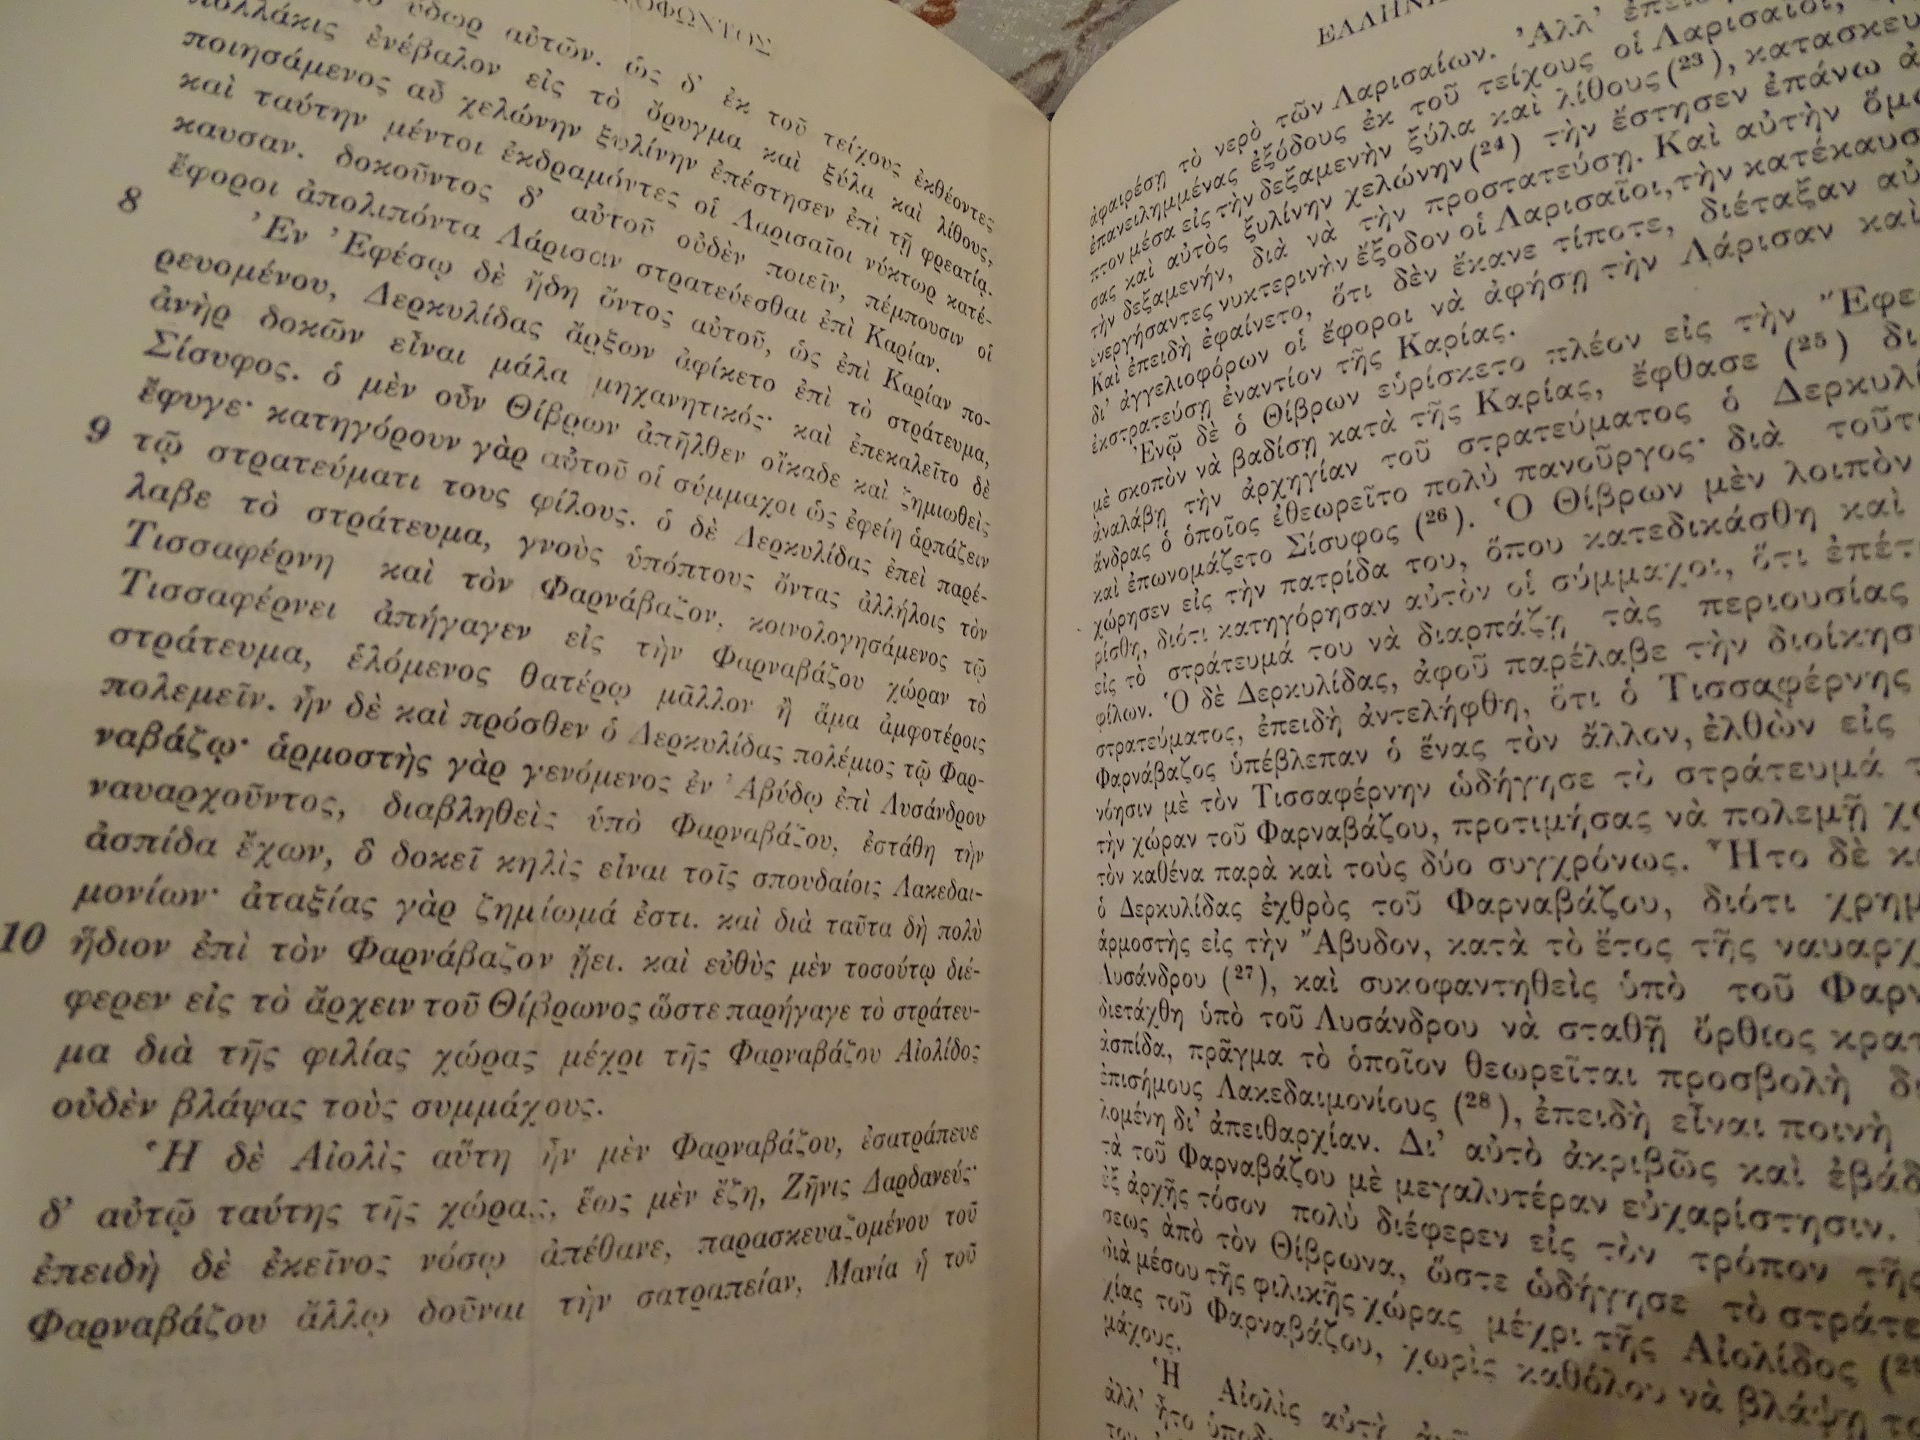 ΟΦΩΝΤΟΣ
ὕδωρ αὐτῶν. ὡς δ' ἐκ τοῦ τείχους ἐκθέοντες
πολλάκις ἐνέβαλον εἰς τὸ ὄρυγμα καὶ ξύλα καὶ λίθους,
ποιησάμενος αὖ χελώνην ξυλίνην ἐπέστησεν ἐπὶ τῇ φρεατίᾳ.
καὶ ταύτην μέντοι ἐκδραμόντες οἱ Λαρισαῖοι νύκτωρ κατέ-
καυσαν. δοκοῦντος δ' αὐτοῦ οὐδὲν ποιεῖν, πέμπουσιν οἱ
ἔφοροι ἀπολιπόντα Λάρισαν στρατεύεσθαι ἐπὶ Καρίαν.
8 Ἐν Ἐφέσῳ δὲ ἤδη ὄντος αὐτοῦ, ὡς ἐπὶ Καρίαν πο-
ρευομένου, Δερκυλίδας ἄρξων ἀφίκετο ἐπὶ τὸ στράτευμα,
ἀνὴρ δοκῶν εἶναι μάλα μηχανητικός· καὶ ἐπεκαλεῖτο δὲ
Σίσυφος. ὁ μὲν οὖν Θίβρων ἀπῆλθεν οἴκαδε καὶ ζημιωθεὶς
ἔφυγε· κατηγόρουν γὰρ αὐτοῦ οἱ σύμμαχοι ὡς ἐφείη ἁρπάζειν
9 τῷ στρατεύματι τους φίλους. ὁ δὲ Δερκυλίδας ἐπεὶ παρέ-
λαβε τὸ στράτευμα, γνοὺς ὑπόπτους ὄντας ἀλλήλοις τὸν
Τισσαφέρνη καὶ τὸν Φαρνάβαζον, κοινολογησάμενος τῷ
Τισσαφέρνει ἀπήγαγεν εἰς τὴν Φαρναβάζου χώραν τὸ
στράτευμα, ἑλόμενος θατέρῳ μᾶλλον ἢ ἅμα ἀμφοτέροις
πολεμεῖν. ἦν δὲ καὶ πρόσθεν ὁ Δερκυλίδας πολέμιος τῷ Φαρ-
ναβάζῳ· ἁρμοστὴς γὰρ γενόμενος ἐν Ἀβύδῳ ἐπὶ Λυσάνδρου
ναυαρχοῦντος, διαβληθεὶς ὑπὸ Φαρναβάζου, ἐστάθη τὴν
ἀσπίδα ἔχων, ὃ δοκεῖ κηλὶς εἶναι τοῖς σπουδαίοις Λακεδαι-
μονίων· ἀταξίας γὰρ ζημίωμά ἐστι. καὶ διὰ ταῦτα δὴ πολὺ
10 ἥδιον ἐπὶ τὸν Φαρνάβαζον ᾔει. καὶ εὐθὺς μὲν τοσούτῳ διέ-
φερεν εἰς τὸ ἄρχειν τοῦ Θίβρωνος ὥστε παρήγαγε τὸ στράτευ-
μα διὰ τῆς φιλίας χώρας μέχρι τῆς Φαρναβάζου Αἰολίδος
οὐδὲν βλάψας τοὺς συμμάχους.
Ἡ δὲ Αἰολὶς αὕτη ἦν μὲν Φαρναβάζου, ἐσατράπευε
δ' αὐτῷ ταύτης τῆς χώρας, ἕως μὲν ἔζη, Ζῆνις Δαρδανεύς·
ἐπειδὴ δὲ ἐκεῖνος νόσῳ ἀπέθανε, παρασκευαζομένου τοῦ
Φαρναβάζου ἄλλῳ δοῦναι τὴν σατραπείαν, Μανία ἡ τοῦ
ΕΛΛΗΝΙ
ἀφαιρέσῃ τὸ νερὸ τῶν Λαρισαίων. Ἀλλ'
ἐπανειλημμένας ἐξόδους ἐκ τοῦ τείχους οἱ Λαρισαῖοι,
πτον μέσα εἰς τὴν δεξαμενὴν ξύλα καὶ λίθους (23), κατασκευ
σας καὶ αὐτὸς ξυλίνην χελώνην (24) τὴν ἔστησεν ἐπάνω
τὴν δεξαμενήν, διὰ νὰ τὴν προστατεύσῃ. Καὶ αὐτὴν ὅμ
ενεργήσαντες νυκτερινὴν ἔξοδον οἱ Λαρισαῖοι, τὴν κατέκαυσ
Καὶ ἐπειδὴ ἐφαίνετο, ὅτι δὲν ἔκανε τίποτε, διέταξαν αὐ
δι' ἀγγελιοφόρων οἱ ἔφοροι νὰ ἀφήσῃ τὴν Λάρισαν καὶ
ἐκστρατεύσῃ ἐναντίον τῆς Καρίας.
Ἐνῷ δὲ ὁ Θίβρων εὑρίσκετο πλέον εἰς τὴν Ἔφε
μὲ σκοπὸν νὰ βαδίσῃ κατὰ τῆς Καρίας, ἔφθασε (25) δι
ἀναλάβῃ τὴν ἀρχηγίαν τοῦ στρατεύματος ὁ Δερκυλί
ἄνδρας ὁ ὁποῖος ἐθεωρεῖτο πολὺ πανοῦργος· διὰ τοῦτ
καὶ ἐπωνομάζετο Σίσυφος (26). Ὁ Θίβρων μὲν λοιπὸν
χώρησεν εἰς τὴν πατρίδα του, ὅπου κατεδικάσθη καὶ
ρίσθη, διότι κατηγόρησαν αὐτὸν οἱ σύμμαχοι, ὅτι ἐπέτ
εἰς τὸ στράτευμά του νὰ διαρπάζῃ τὰς περιουσίας
φίλων. Ὁ δὲ Δερκυλίδας, ἀφοῦ παρέλαβε τὴν διοίκησ
στρατεύματος, ἐπειδὴ ἀντελήφθη, ὅτι ὁ Τισσαφέρνης
Φαρνάβαζος ὑπέβλεπαν ὁ ἕνας τὸν ἄλλον, ἐλθὼν εἰς
νόησιν μὲ τὸν Τισσαφέρνην ὡδήγησε τὸ στράτευμά τ
τὴν χώραν τοῦ Φαρναβάζου, προτιμήσας νὰ πολεμῇ χ
τὸν καθένα παρὰ καὶ τοὺς δύο συγχρόνως. Ἦτο δὲ κ
ὁ Δερκυλίδας ἐχθρὸς τοῦ Φαρναβάζου, διότι χρημ
ἁρμοστὴς εἰς τὴν Ἄβυδον, κατὰ τὸ ἔτος τῆς ναυαρχ
Λυσάνδρου (27), καὶ συκοφαντηθεὶς ὑπὸ τοῦ Φαρν
διετάχθη ὑπὸ τοῦ Λυσάνδρου νὰ σταθῇ ὄρθιος κρατ
ἀσπίδα, πρᾶγμα τὸ ὁποῖον θεωρεῖται προσβολὴ δ
ἐπισήμους Λακεδαιμονίους (28), ἐπειδὴ εἶναι ποινὴ
λομένη δι' ἀπειθαρχίαν. Δι' αὐτὸ ἀκριβῶς καὶ ἐβάδ
τὰ τοῦ Φαρναβάζου μὲ μεγαλυτέραν εὐχαρίστησιν.
ἐξ ἀρχῆς τόσον πολὺ διέφερεν εἰς τὸν τρόπον τῆς
σεως ἀπὸ τὸν Θίβρωνα, ὥστε ὡδήγησε τὸ στράτε
διὰ μέσου τῆς φιλικῆς χώρας μέχρι τῆς Αἰολίδος
χίας τοῦ Φαρναβάζου, χωρὶς καθόλου νὰ βλάψῃ το
μάχους.
Ἡ Αἰολὶς αὐτὴ
ἀλλ' ἦτο